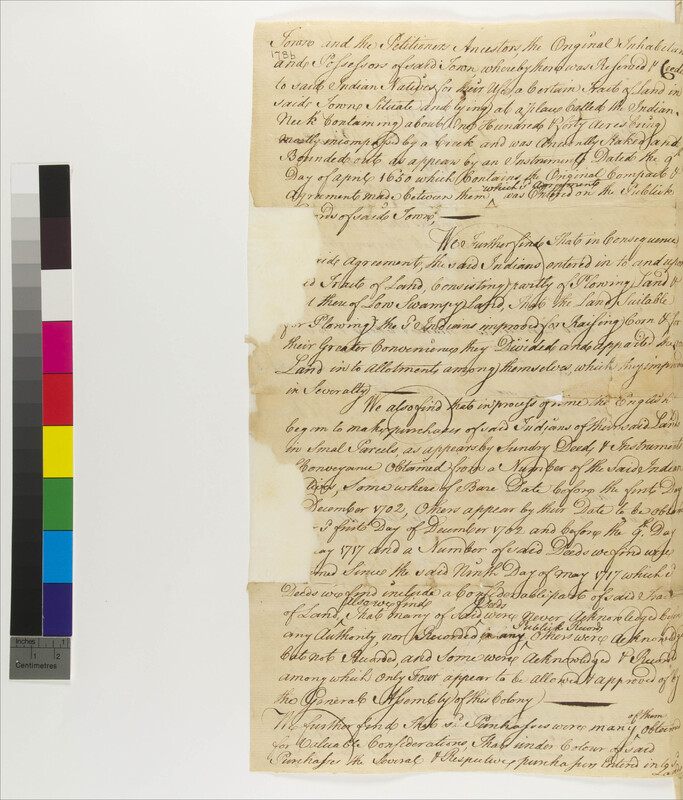 Town and the Petitioners Ancestors the Original Inhabetan
1786
and Possessors of said Town whereby there was Reserved &
to said Indian Natives for their Use a Certain Tract of Land in
said Town Situate and lying at a place Called the Indian
Neck Containing about One Hundred & forty Acres being
mostly incompased by a Creek and was Anciently Staked and
Bounded out as appears by an Instrument Dated the 9th
Day of april 1650 which Contains the Original Compact &
which sd Agreement
Agreement made between them ^ was Entered on the Publick
ords of said Town,
We Further find That in Consequence
aide Agreement, the said Indians entered in to and upon
d Tract of Land, Consisting partly of Plowing Land &
t thereof Low Swampy Land, That the Land Suitable
for Plowing the sd Indians improved for Raising Corn & for
their Greater Convenience they Divided and apported the
Land in to Allotments among themselves, which they improv
in Severalty
We also find that in process of time the English
began to make purchases of said Indians of their said Land
in Smal Parcels as appears by Sundry Deeds & Instrument
Conveyance Obtained from a Number of the said Indian
tives, Some where of Bare Date before the first Day
December 1702, Others appear by their Date to be obtain
sd first Day of December 1702 and before the 9th Day
ay 1717 and a Number of said Deeds we find were
ned Since the said Ninth Day of may 1717 which sd
Deeds we find include a Considerable part of said Tract
also we find Deeds
of Land, ^ That many of said were Never Acknowledged before
Publick Record
any Authority, nor Recorded in any ^ Others were Acknowledg
but not Recorded, and Some were Acknowledged & Recorded
among which Only Four appear to be allowed & approved of by
the General Assembly of this Colony
of them
We further find That sd Purchases were many ^ Obtained
for Valuable Considerations That under Colour of said
Purchases the Several & Respective purchasers Entered in